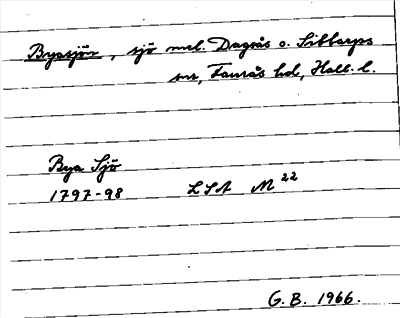 Byasjön, sjö mel. Dagsås o. Sibbarps
snr, Fauräs hd, Hall. l.
Bya Sjö
1797-98 LSA M 22
G. B. 1966.